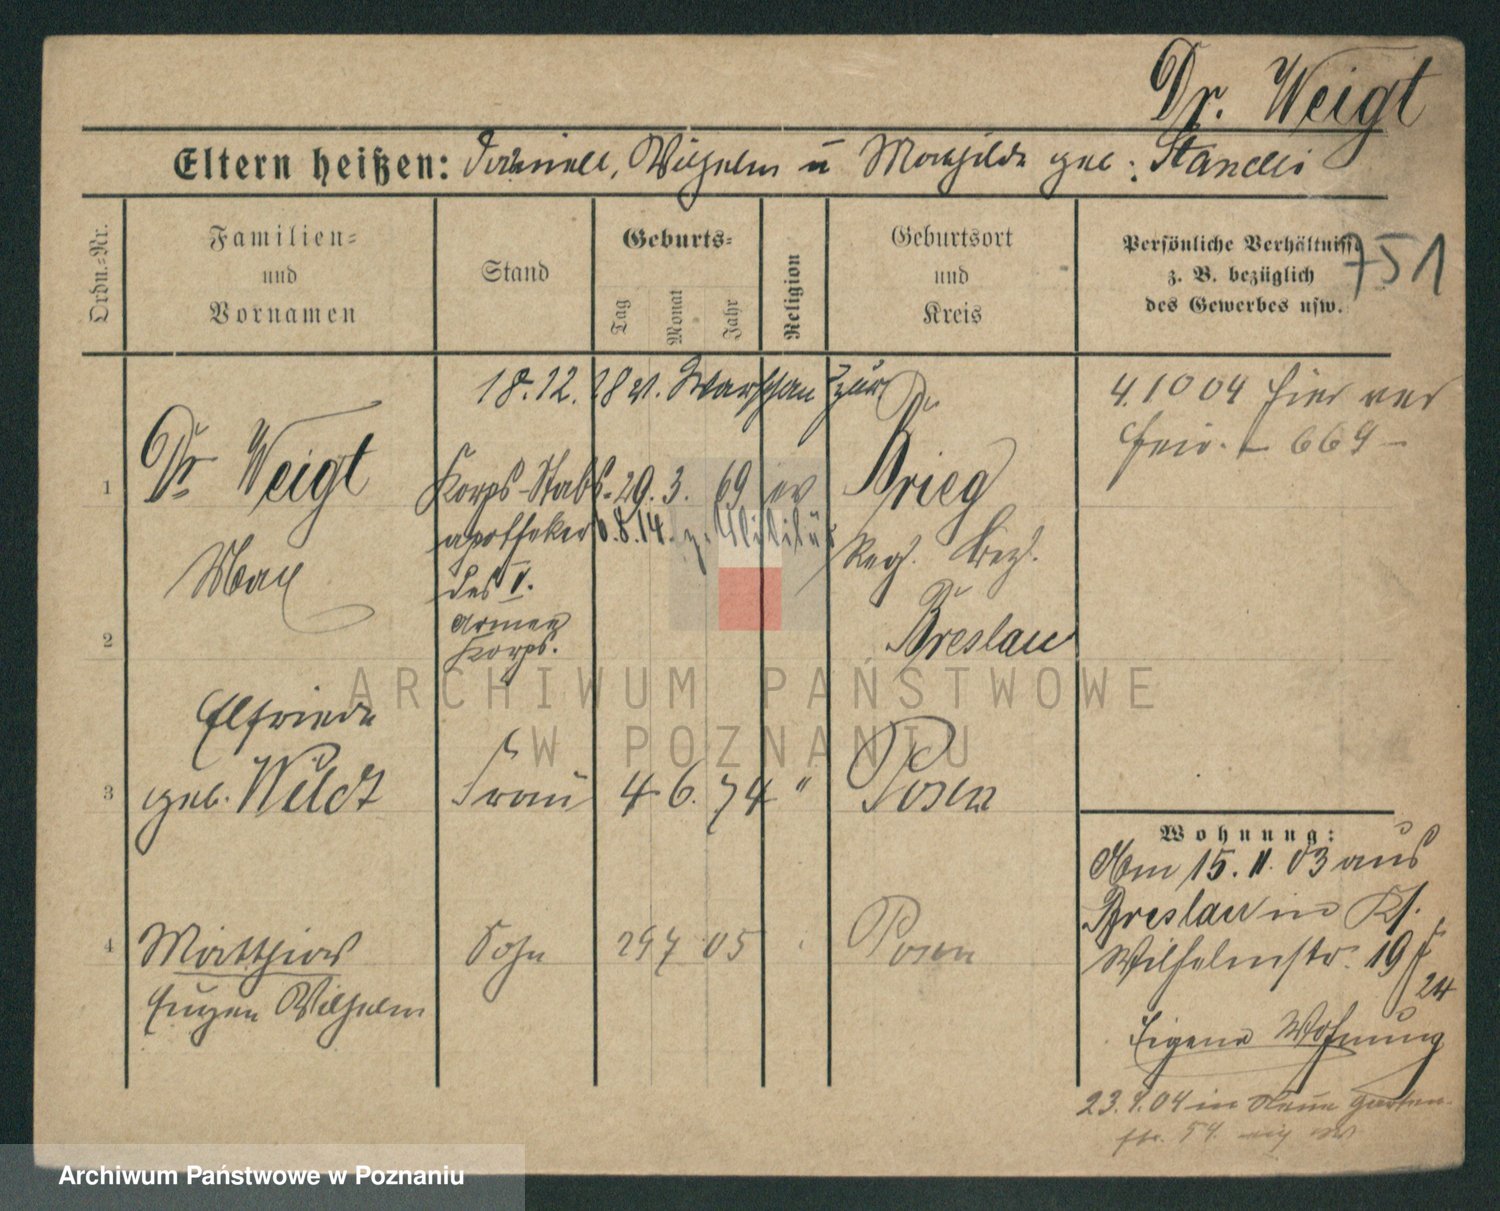 Dr. Weigt
Eltern heißen: Wilhelm u Mathilde geb:
751
Ordn.-Nr.
Familien-
und
Vornamen
Stand
Geburts-
Tag
Monat
Jahr
Religion
Geburtsort
und
Kreis
Persönliche Verhältnisse
z. B. bezüglich
des Gewerbes usw.
18.12. Warschau zur
4.10 04 hier ver
heir. - 669 -
1
Dr Weigt
Max
Korps-Stabs-
apotheker
des V.
Armee
Korps.
29. 3. 69 ev
6.8.14. z. Militär
Brieg
Reg. Bez.
Breslau
2
3
Elfriede
geb. Wildt
Frau
4 6. 74 "
Posen
4
Matthias
Eugen Wilhelm
Sohn
29 7 05
Posen
Wohnung:
Am 15. 11. 03 aus
Breslau in Kl.
Wilhelmstr. 19
24
Eigene Wohnung
23. 04 in Neue Garten-
str.
ARCHIWUM PAŃSTWOWE
W POZNANIU
Archiwum Państwowe w Poznaniu